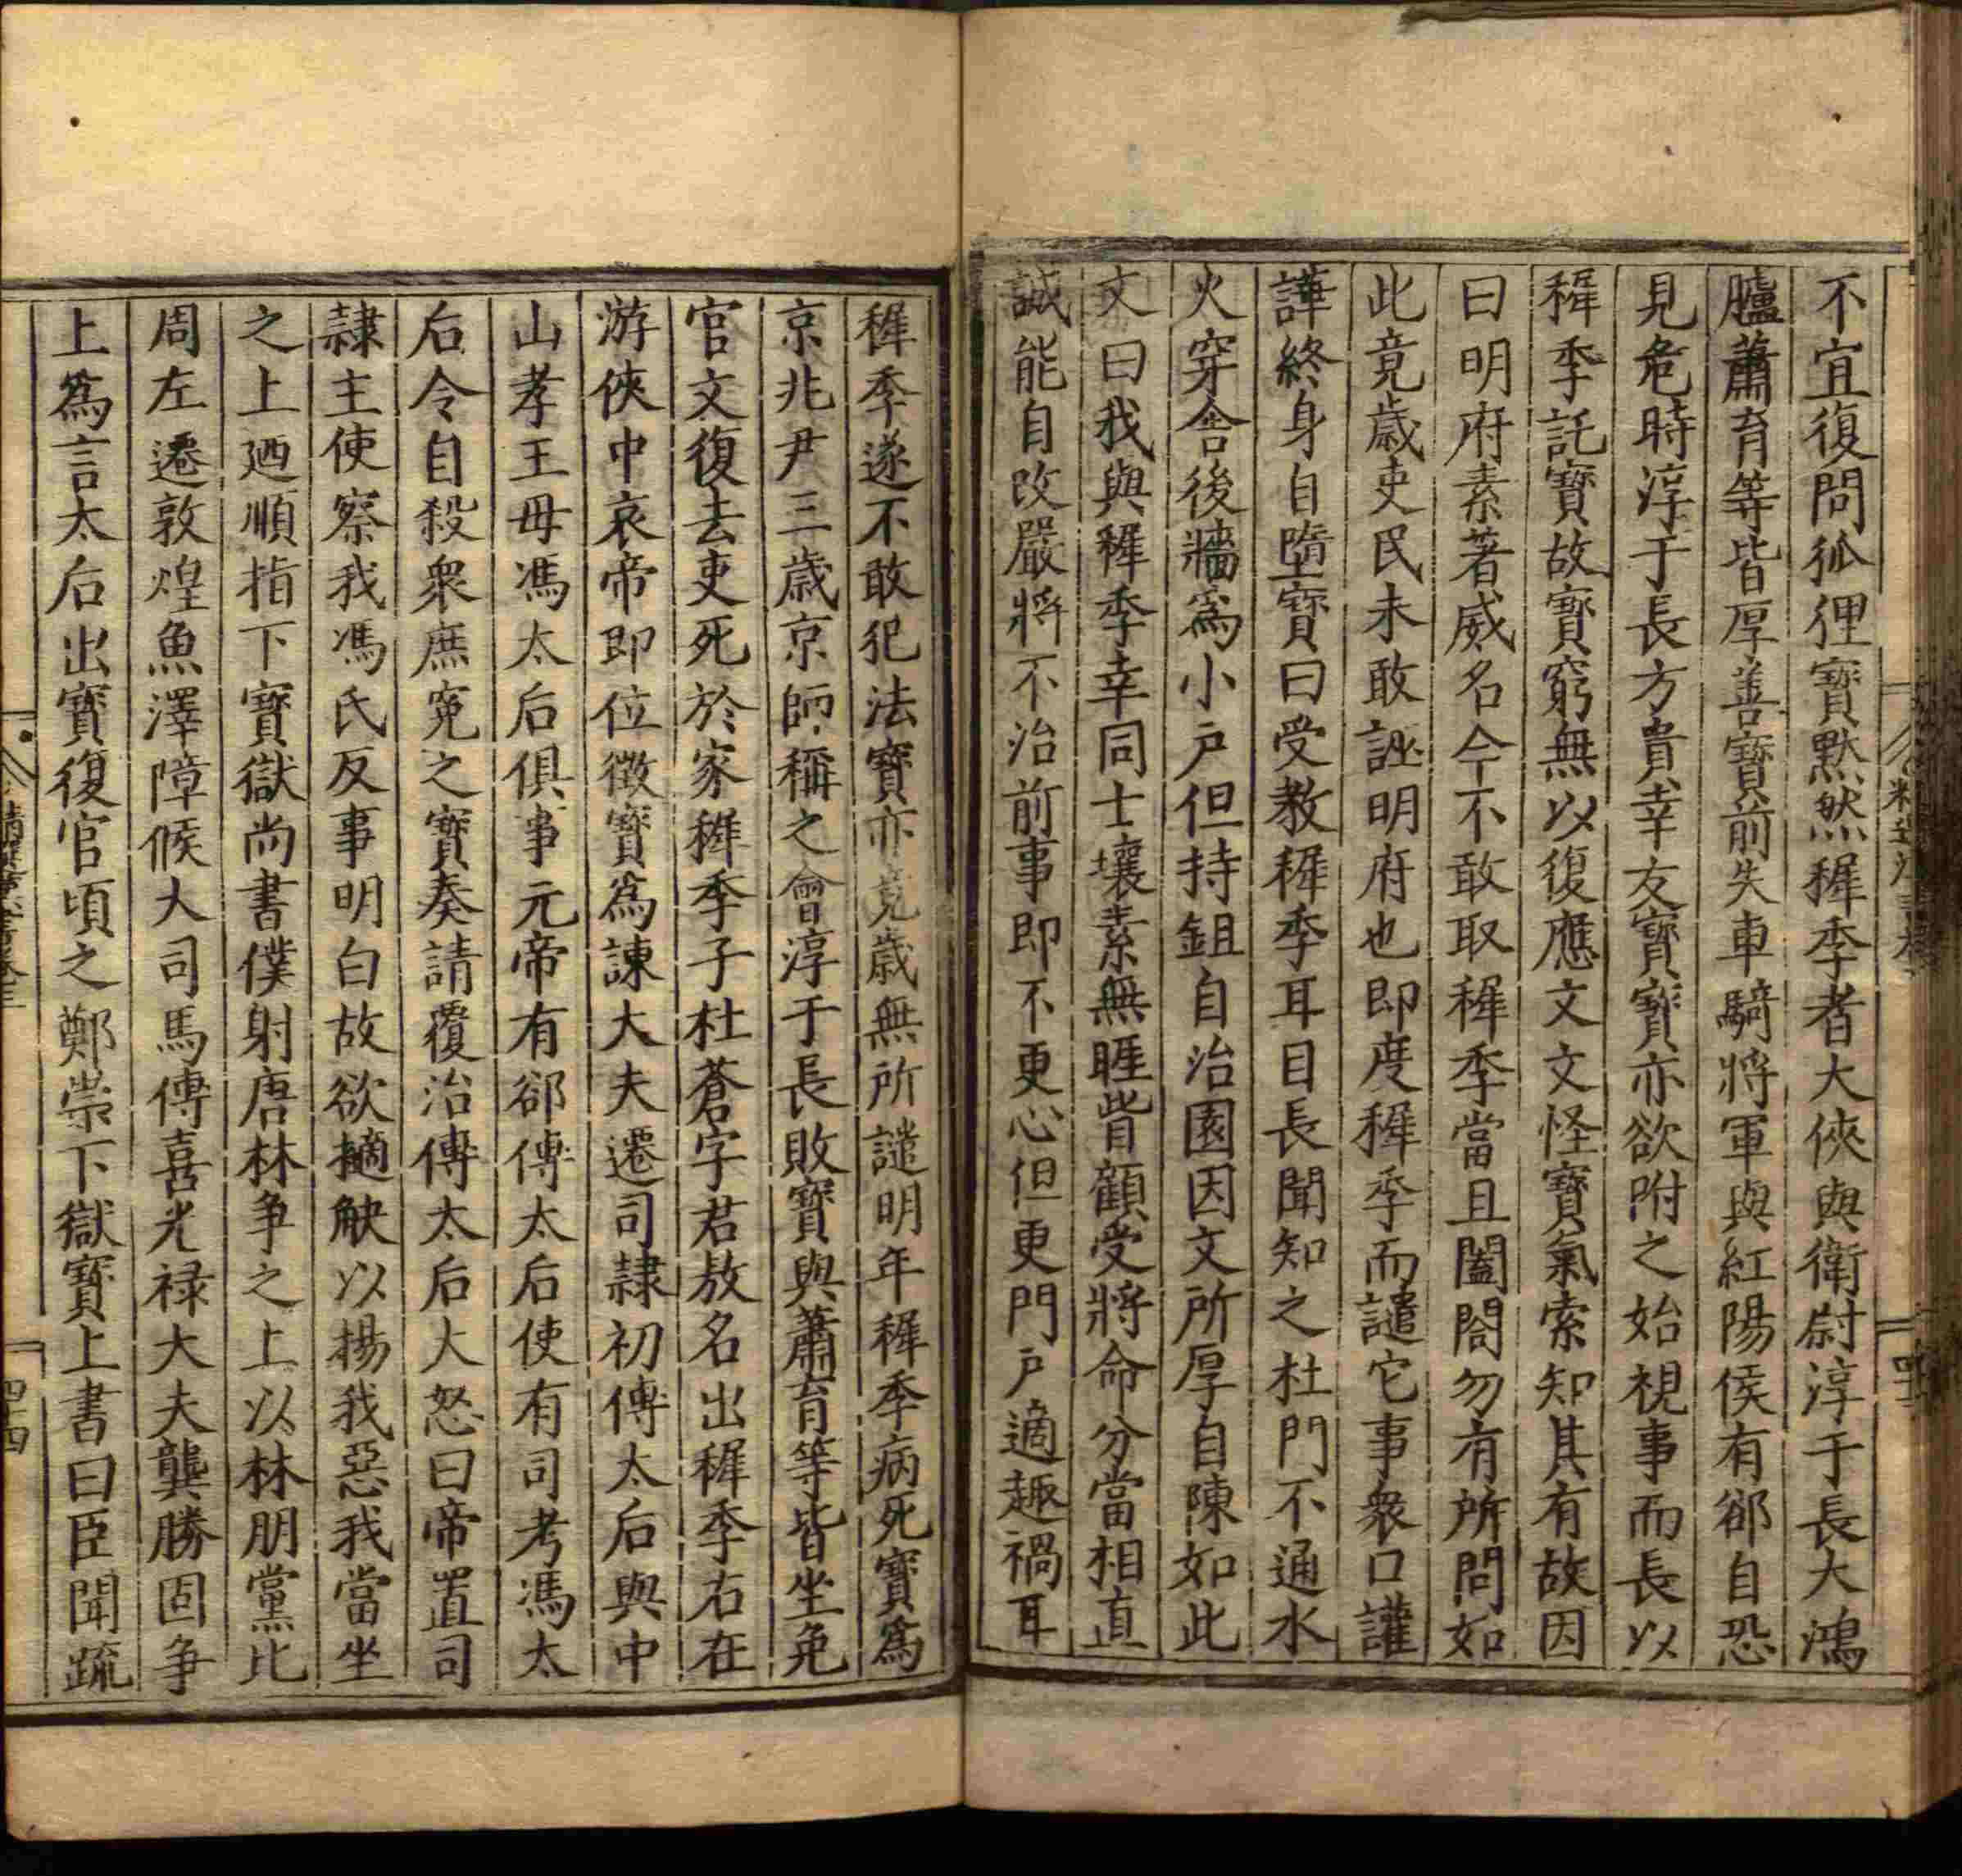 不宜復問狐狸寶黙然穉季者大俠與衛尉淳于長大鴻
臚蕭育等皆厚善寶前失車騎將軍與紅陽侯有郤自恐
見危時淳于長方貴幸友寶寶亦欲附之始視事而長以
穉季託寶故寶窮無以復應文文怪寶氣索知其有故因
曰明府素著威名今不敢取穉季當且闔閤勿有所問如
此竟歲吏民未敢誣明府也即度穉季而譴它事衆口讙
譁終身自墮寶曰受教穉季耳目長聞知之杜門不通水
火穿舍後牆爲小戸但持鉏自治園因文所厚自陳如此
文曰我與穉季幸同士壤素無睚眥顧受將命分當相直
誠能自改嚴將不治前事即不更心但更門戸適趣禍耳
穉季遂不敢犯法寶亦竟歲無所譴明年穉季病死寶爲
京兆尹三歲京師稱之會淳于長敗寶與蕭育等皆坐免
官文復去吏死於家穉季子杜蒼字君敖名出穉季右在
游俠中哀帝即位徴寶爲諫大夫遷司隷初傅太后與中
山孝王母馮太后俱事元帝有郤傅太后使有司考馮太
后令自殺衆庶寃之寶奏請覆治傅太后大怒曰帝置司
隷主使察我馮氏反事明白故欲擿觖以揚我惡我當坐
之上廼順指下寶獄尚書僕射唐林争之上以林朋黨比
周左遷敦煌魚澤障候大司馬傅喜光禄大夫龔勝固争
上爲言太后出寶復官頃之鄭崇下獄寶上書曰臣聞疏
四四